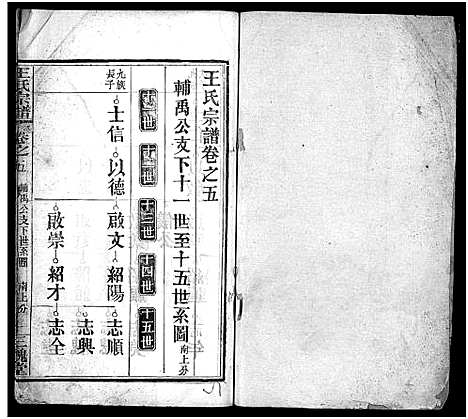 王氏宗譜卷之五
輔禹公支下十一世至十五世系圖 南上分
十一世 十二世 十三世 十四世 十五世
九族長子 士信 以德 啟文 紹陽 志順
志興
啟崇 紹才 志全
王氏宗譜 卷之五 輔禹公支下世系圖 南上分 三槐堂